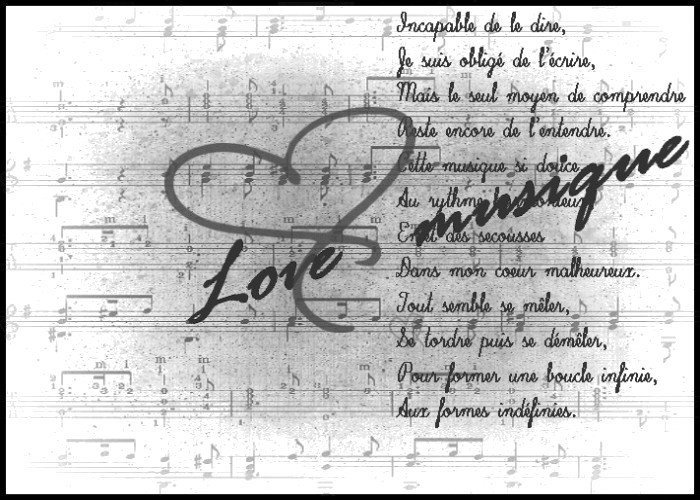 Incapable de le dire,
Je suis obligé de l'écrire,
Mais le seul moyen de comprendre
Reste encore de l'entendre.
Cette musique si douce
Au rythme
Et des secousses
Dans mon coeur malheureux.
Tout semble se mêler,
Se tordre puis se démêler,
Pour former une boucle infinie,
Aux formes indéfinies.
Love musique